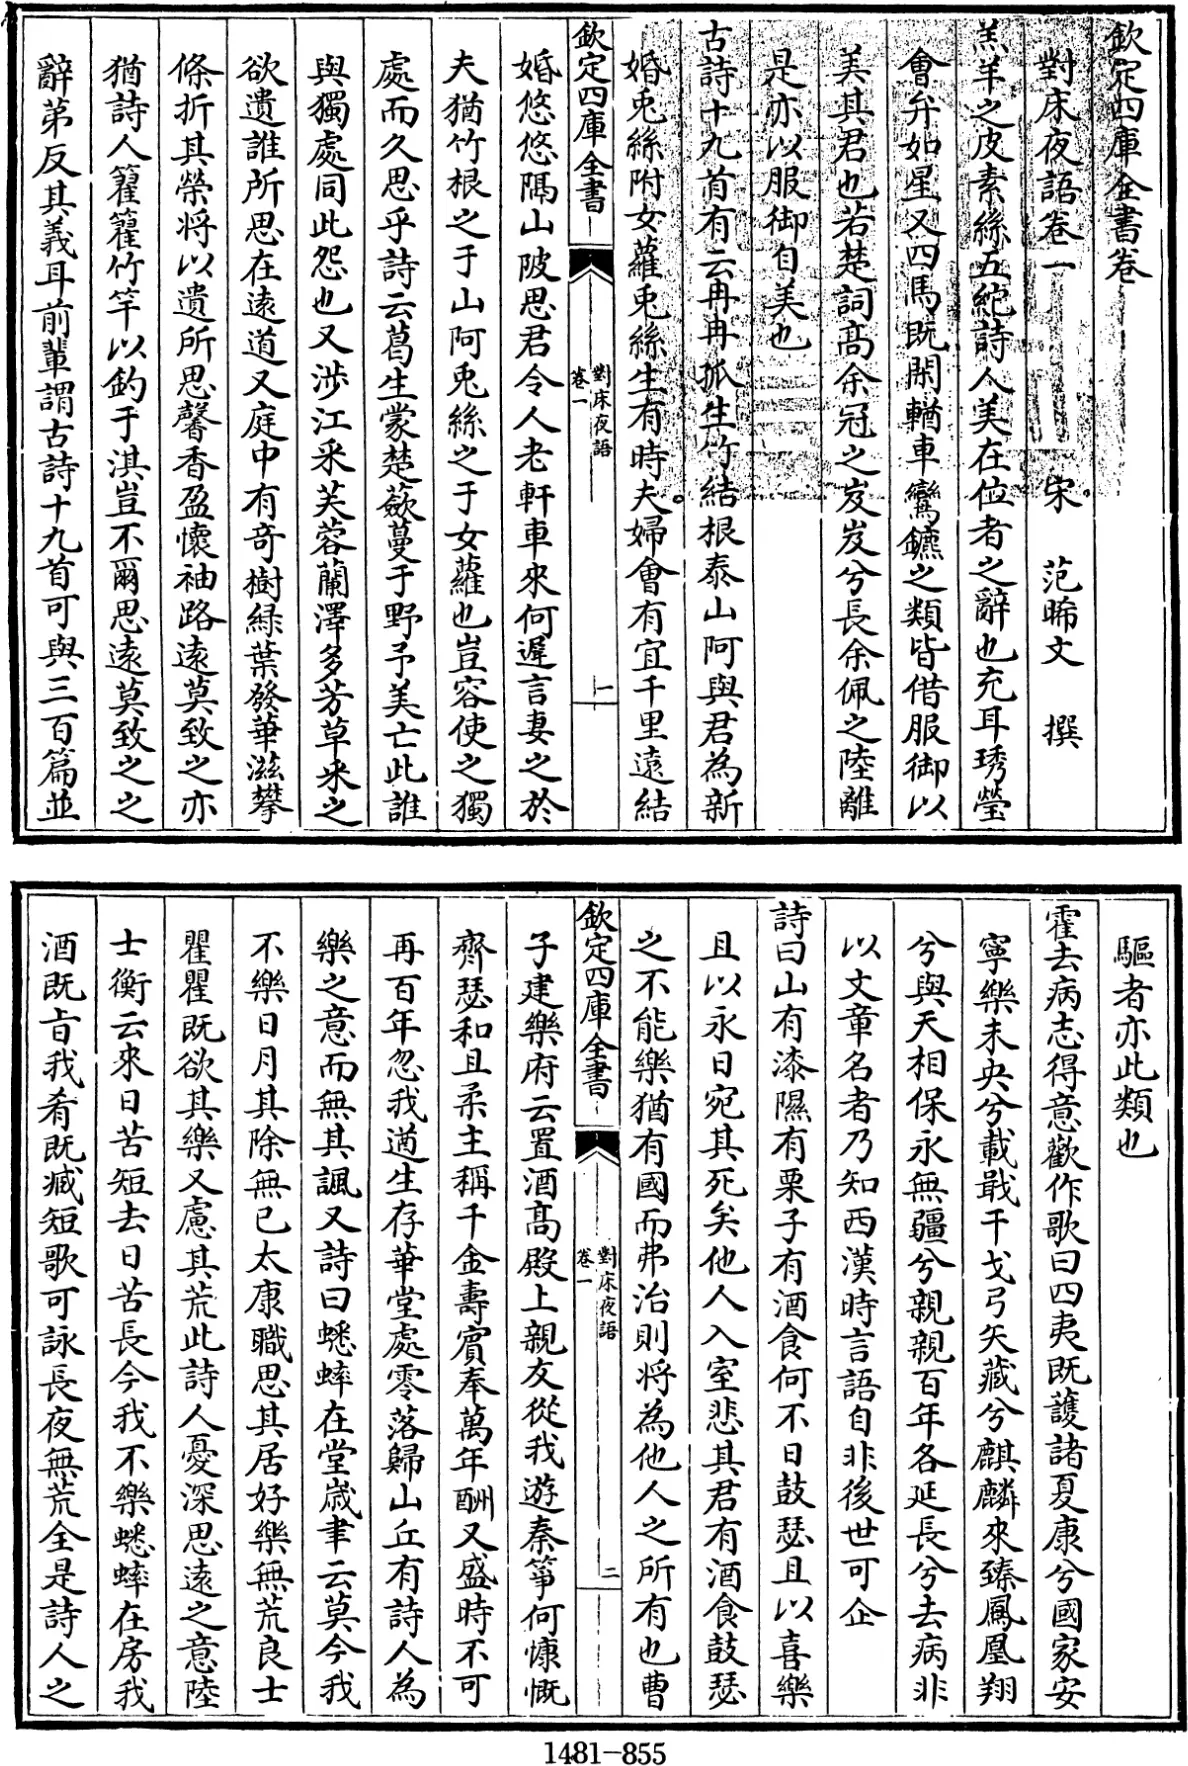 欽定四庫全書卷
對床夜語卷一
宋 范晞文 撰
羔羊之皮素絲五紽詩人美在位者之辭也充耳琇瑩
會弁如星又四馬既閑輶車鸞鑣之類皆借服御以
美其君也若楚詞髙余冠之岌岌兮長余佩之陸離
是亦以服御自美也
古詩十九首有云冉冉孤生竹結根泰山阿與君為新
婚兎絲附女蘿兎絲生有時夫婦會有宜千里遠結
欽定四庫全書
對床夜語
卷一
一
婚悠悠隔山陂思君令人老軒車來何遲言妻之於
夫猶竹根之于山阿兎絲之于女蘿也豈容使之獨
處而久思乎詩云葛生蒙楚蘞蔓于野予美亡此誰
與獨處同此怨也又涉江采芙蓉蘭澤多芳草采之
欲遺誰所思在遠道又庭中有奇樹緑葉發華滋攀
條折其榮將以遺所思馨香盈懷袖路遠莫致之亦
猶詩人籊籊竹竿以釣于淇豈不爾思遠莫致之之
辭第反其義耳前輩謂古詩十九首可與三百篇並
驅者亦此類也
霍去病志得意歡作歌曰四夷既䕶諸夏康兮國家安
寧樂未央兮載戢干戈弓矢藏兮麒麟來臻鳳凰翔
兮與天相保永無疆兮親親百年各延長兮去病非
以文章名者乃知西漢時言語自非後世可企
詩曰山有漆隰有栗子有酒食何不日鼓瑟且以喜樂
且以永日宛其死矣他人入室悲其君有酒食鼓瑟
之不能樂猶有國而弗治則将為他人之所有也曹
欽定四庫全書
對床夜語
卷一
二
子建樂府云置酒髙殿上親友從我遊秦箏何慷慨
齊瑟和且柔主稱千金壽賓奉萬年酬又盛時不可
再百年忽我遒生存華堂處零落歸山丘有詩人為
樂之意而無其諷又詩曰蟋蟀在堂嵗聿云莫今我
不樂日月其除無已太康職思其居好樂無荒良士
瞿瞿既欲其樂又慮其荒此詩人憂深思遠之意陸
士衡云來日苦短去日苦長今我不樂蟋蟀在房我
酒既㫖我肴既臧短歌可詠長夜無荒全是詩人之
1481-855